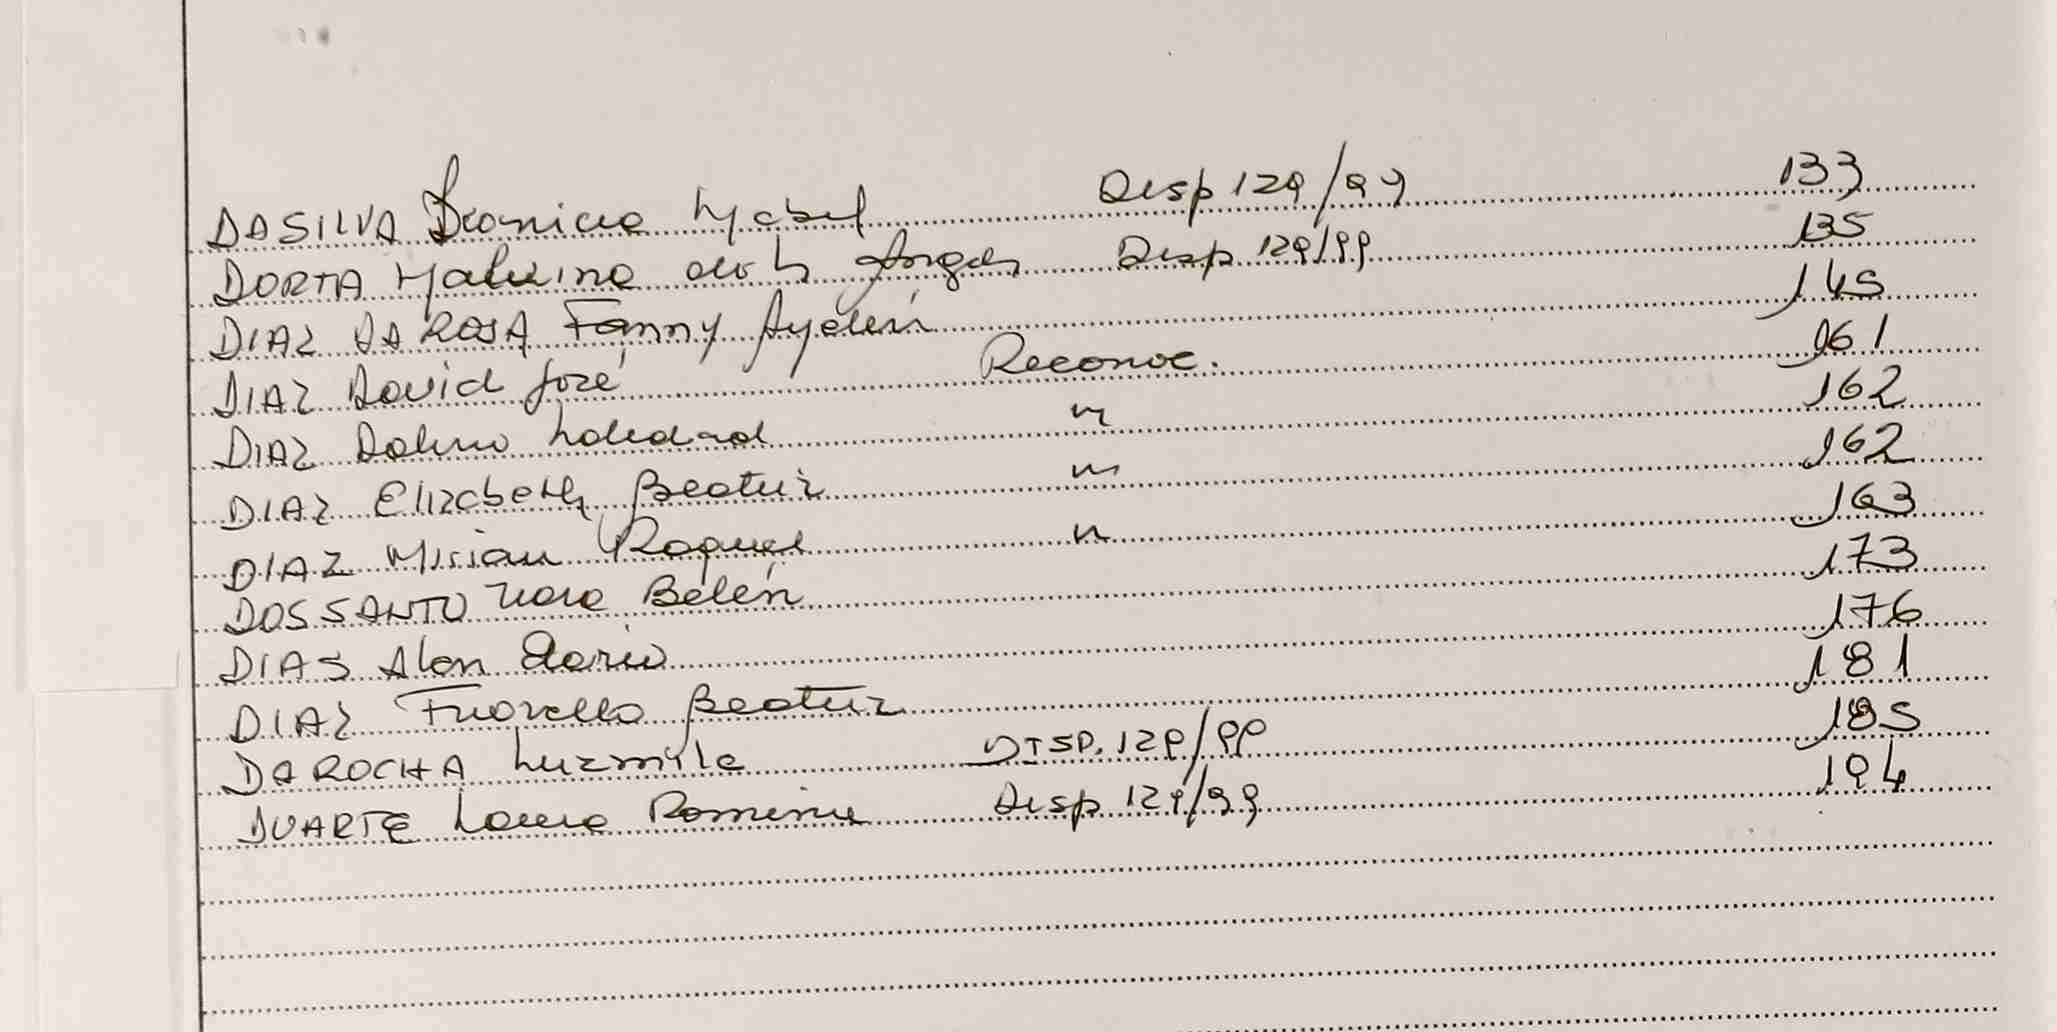 DASILVA Dionicia Mabel Disp 129/99 133
DORTA Malvina de los Angeles Disp 129/99 135
DIAZ DA ROSA Fanny Ayelén 145
DIAZ David José Reconoc. 161
DIAZ Soledad " 162
DIAZ Elizabeth Beatriz " 162
DIAZ Miriam Raquel " 163
DOS SANTO Nara Belén 173
DIAS Alan Dario 176
DIAZ Fiorella Beatriz 181
DAROCHA Luzmila DISP. 129/99 185
DUARTE Laura Romina Disp 129/99 194